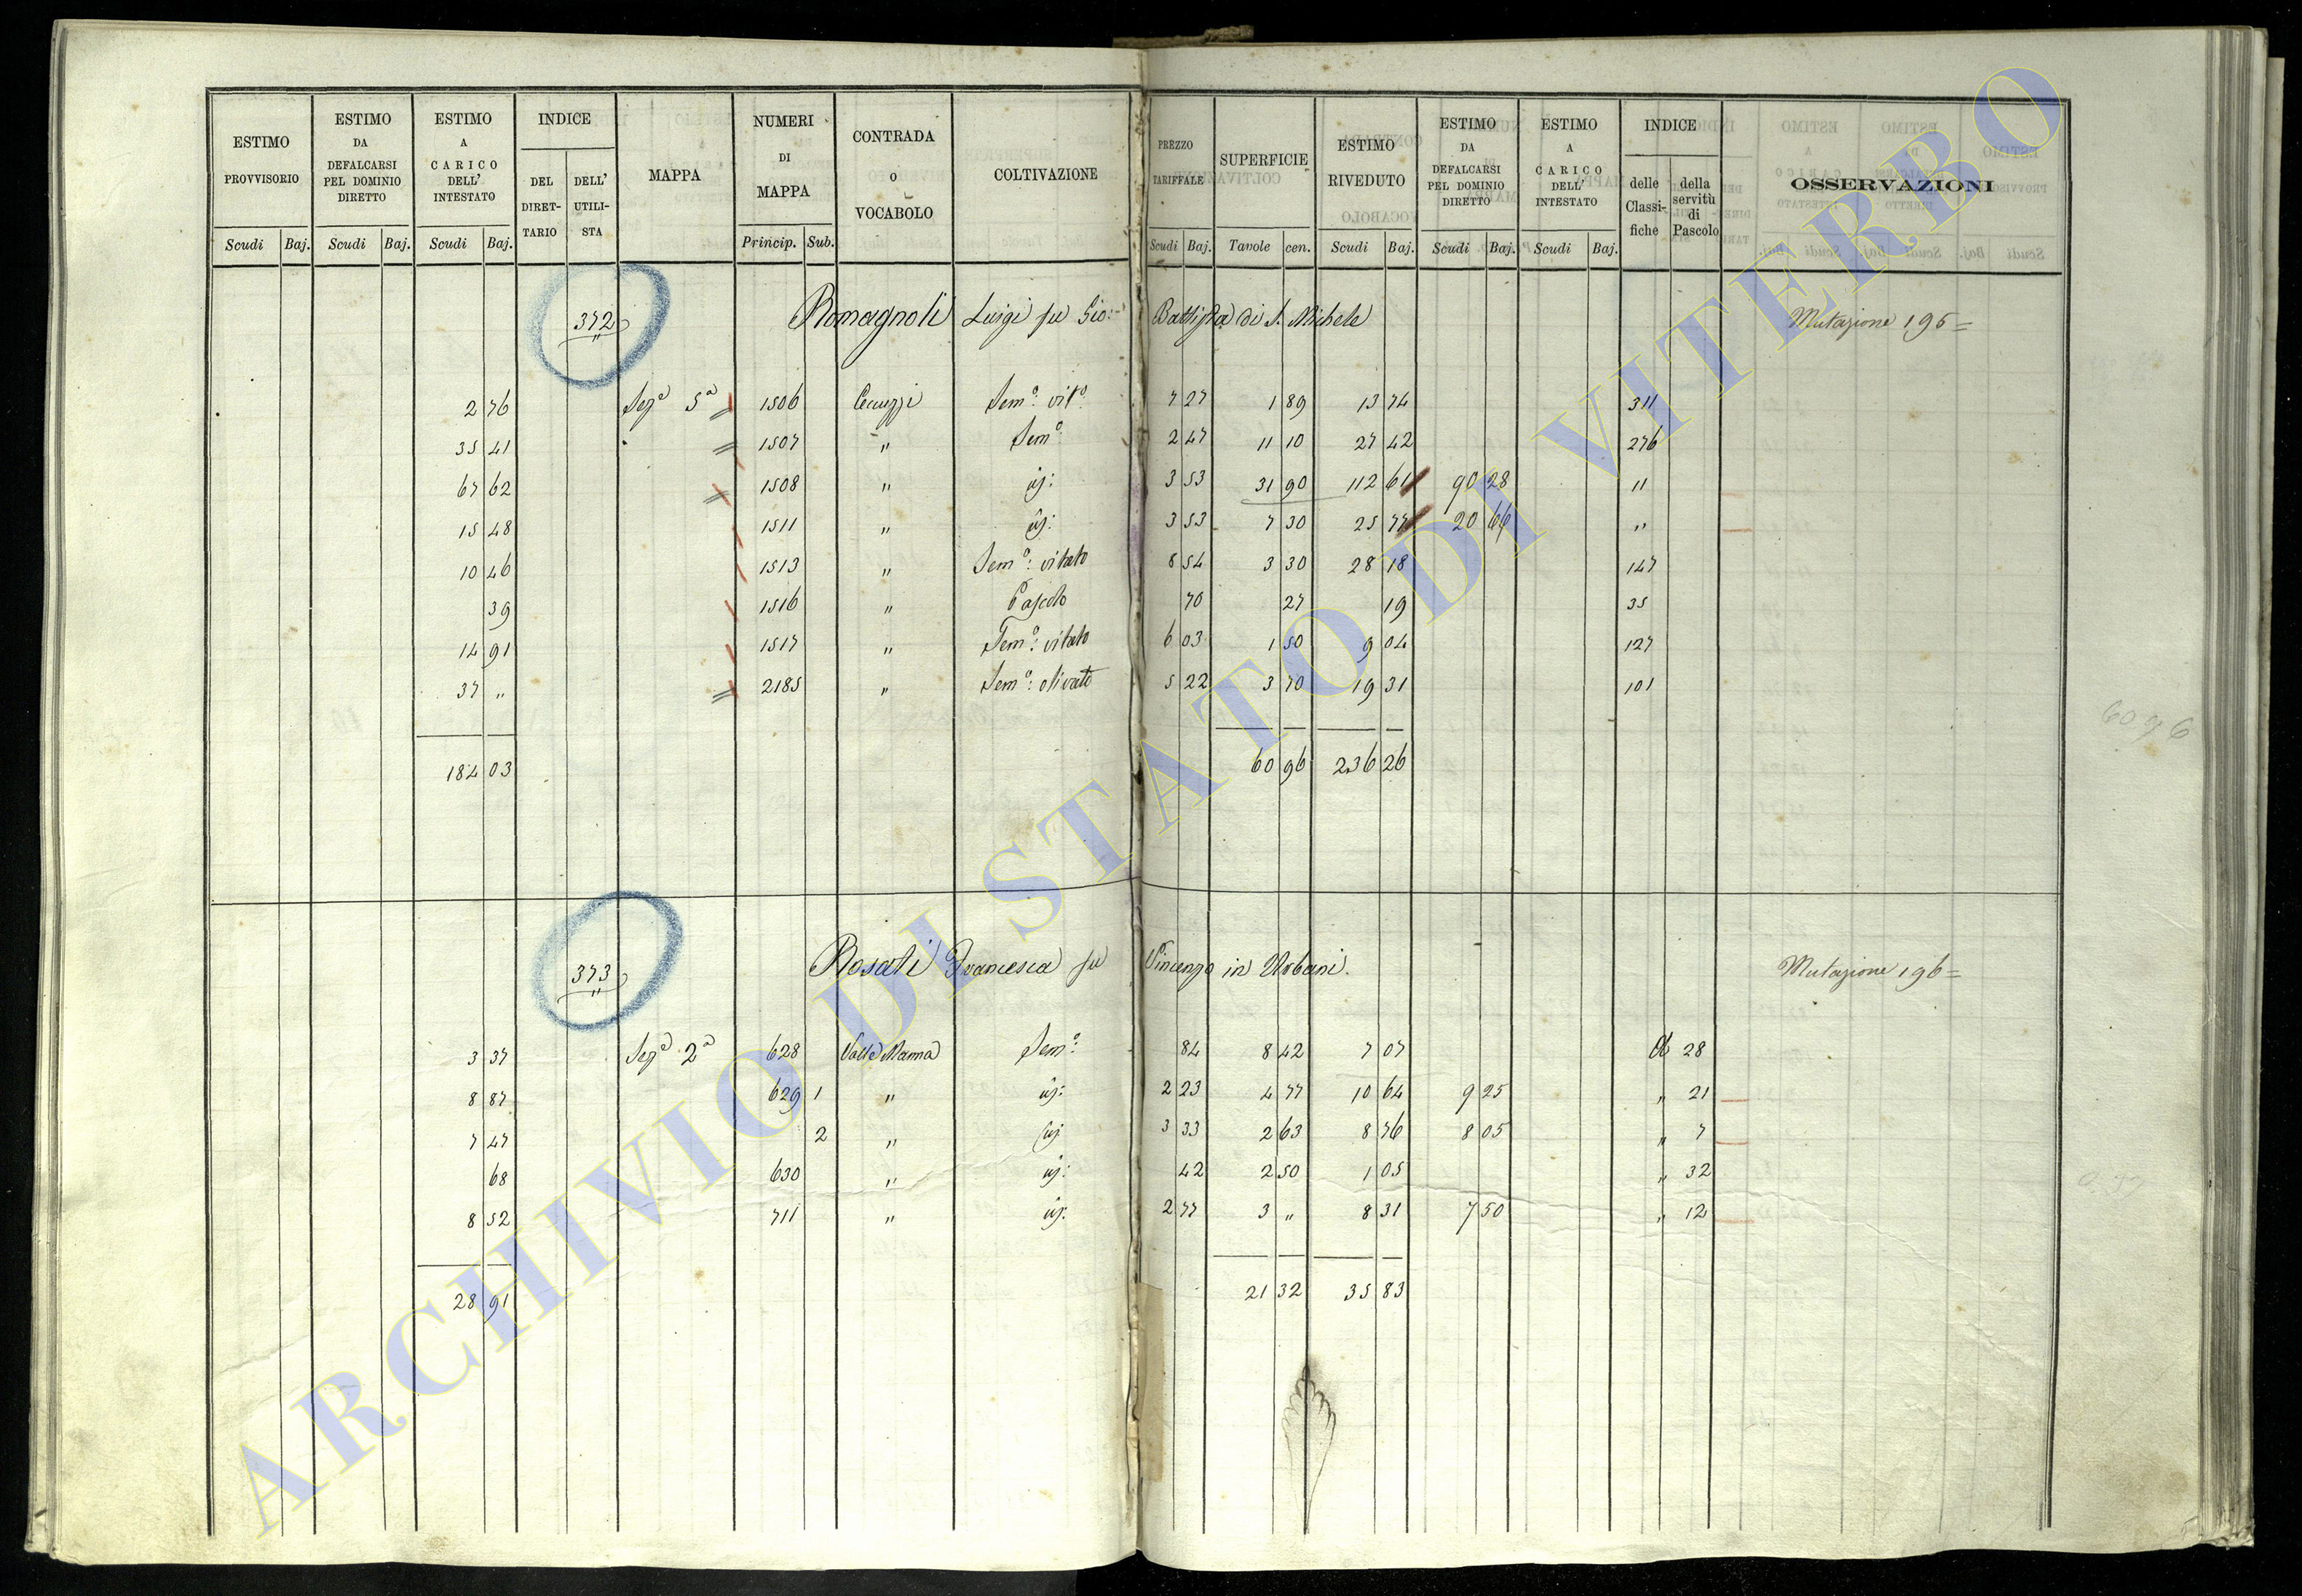 ESTIMO PROVVISORIO
ESTIMO DA DEFALCARSI PEL DOMINIO DIRETTO
ESTIMO A CARICO DELL' INTESTATO
INDICE
DEL DIRET-TARIO
DELL' UTILI-STA
MAPPA
NUMERI DI MAPPA
CONTRADA O VOCABOLO
COLTIVAZIONE
PREZZO TARIFFALE
SUPERFICIE
ESTIMO RIVEDUTO
ESTIMO DA DEFALCARSI PEL DOMINIO DIRETTO
ESTIMO A CARICO DELL' INTESTATO
INDICE
delle Classi-fiche
della servitù di Pascolo
OSSERVAZIONI
Scudi Baj. Scudi Baj. Scudi Baj. Princip. Sub. Scudi Baj. Tavole cen. Scudi Baj. Scudi Baj. Scudi Baj.
372 Romagnoli Luigi fu Gio: Battista di S. Michele Mutazione 195=
2 76 Sez.a 5a 1506 Sem.o vit.o 7 27 1 89 13 74 311
35 41 1507 " Sem.o 2 47 11 10 27 42 276
67 62 1508 " id: 3 53 31 90 112 61 90 28 11
15 48 1511 " id: 3 53 7 30 25 77 20 66 "
10 46 1513 " Sem.o: vitato 8 54 3 30 28 18 147
39 1516 " Pascolo 70 27 19 35
14 91 1517 " Sem.o: vitato 6 03 1 50 9 04 127
37 " 2185 " Sem.o: olivato 5 22 3 70 19 31 101
184 03 60 96 236 26
60 96
373 Rosati Francesca fu Vincenzo in Urbani. Mutazione 196=
3 37 Sez.a 2a 628 Valle Manna Sem.o: 84 8 42 7 07 28
8 87 629 1 " id: 2 23 4 77 10 64 9 25 " 21
7 47 2 " id 3 33 2 63 8 76 8 05 " 7
68 630 " id: 42 2 50 1 05 " 32
8 52 711 " id: 2 77 3 " 8 31 7 50 " 12
28 91 21 32 35 83
ARCHIVIO DI STATO DI VITERBO